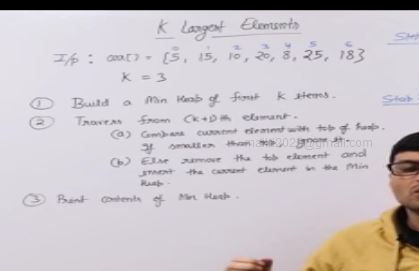 K Largest Elements
0 1 2 3 4 5 6
I/p : arr[] = {5, 15, 10, 20, 8, 25, 18}
K = 3
① Build a Min Heap of first K items.
② Travers from (K+1)th element.
(a) Compare current element with top of heap.
If smaller than top, ignore it.
(b) Else remove the top element and
insert the current element in the Min
Heap.
③ Print contents of Min Heap.